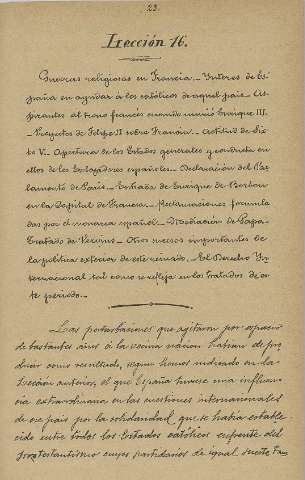 23.
Lección 16.
Guerras religiosas en Francia.- Interes de Es-
paña en ayudar á los católicos de aquel pais.- As-
pirantes al trono francés cuando murió Enrique III.
- Proyectos de Felipe II sobre Francia.- Actitud de Six-
to V.- Apertura de los Estados generales y conducta en
ellos de los Embajadores españoles.- Declaración del Par-
lamento de Paris.- Entrada de Enrique de Borbon
en la capital de Francia.- Reclamaciones formula-
das por el monarca español.- Mediación del Papa.-
Tratado de Vervins.- Otros sucesos importantes de
la politica exterior de este reinado.- El Derecho In-
ternacional tal como se refleja en los tratados de es-
te periodo.-
Las perturbaciones que agitaron por espacio
de bastantes años á la vecina nación habian de pro-
ducir como resultado, segun hemos indicado en la
Lección anterior, el que España tuviese una influen-
cia extraordinaria en las cuestiones internacionales
de ese pais por la solidaridad que se habia estable-
cido entre todos los Estados católicos enfrente del
protestantismo cuyos partidarios de igual suerte